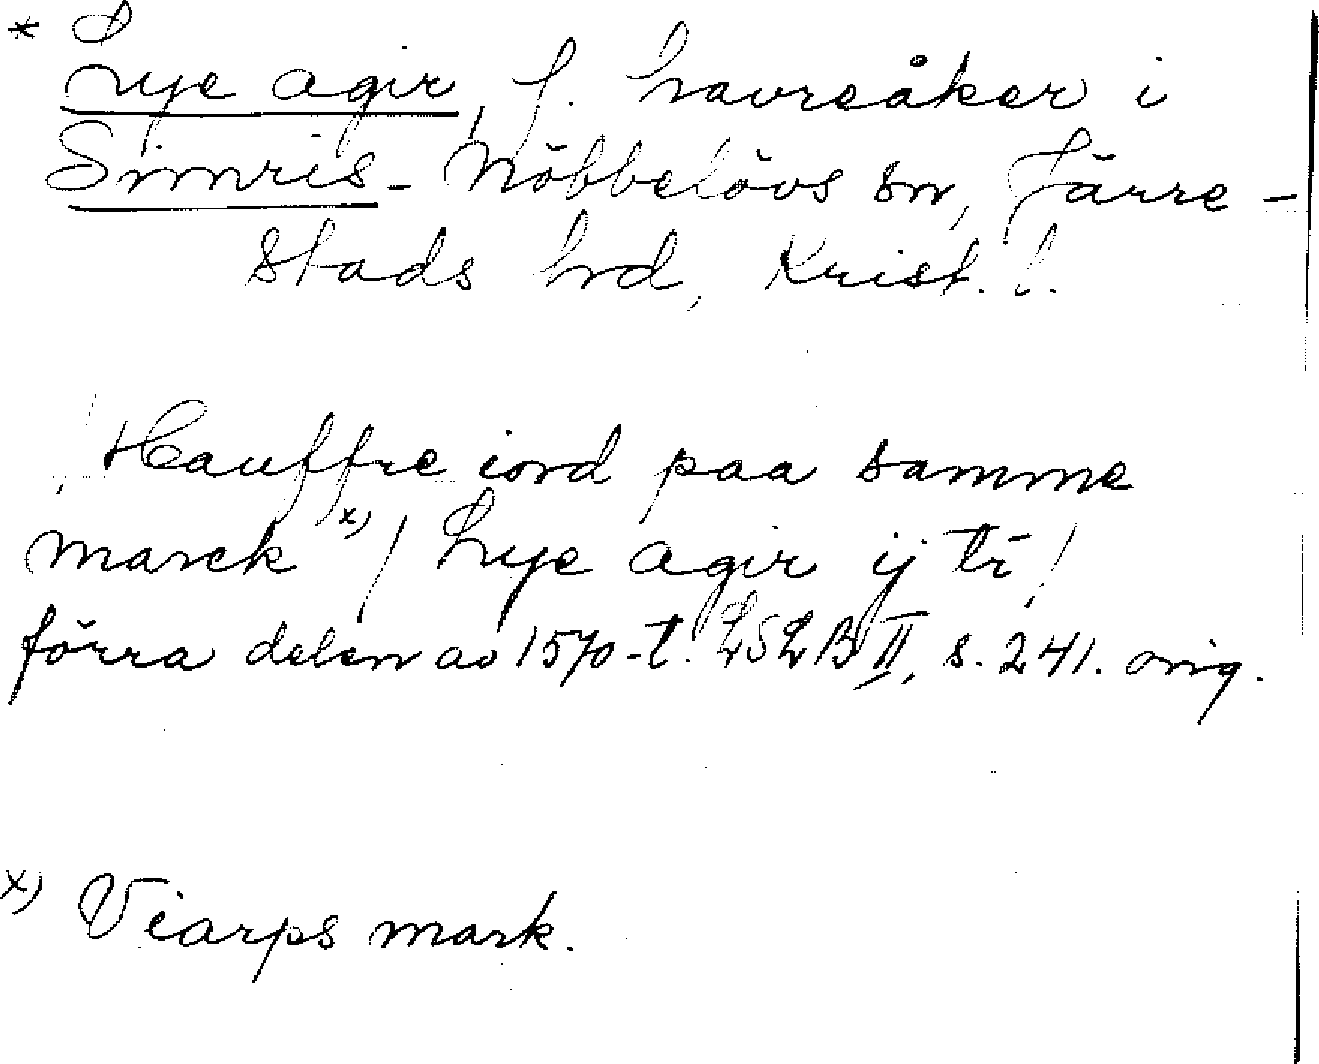 * Lye agir, f. havreåker i
Simris-Nöbbelövs sn, Järre-
stads hd, Krist. l.
/Hauffre iord paa samme
marck x) / Lye agir ij tr̄ /
förra delen av 1570-t. LSLB II, s. 241. orig.
x) Viarps mark.